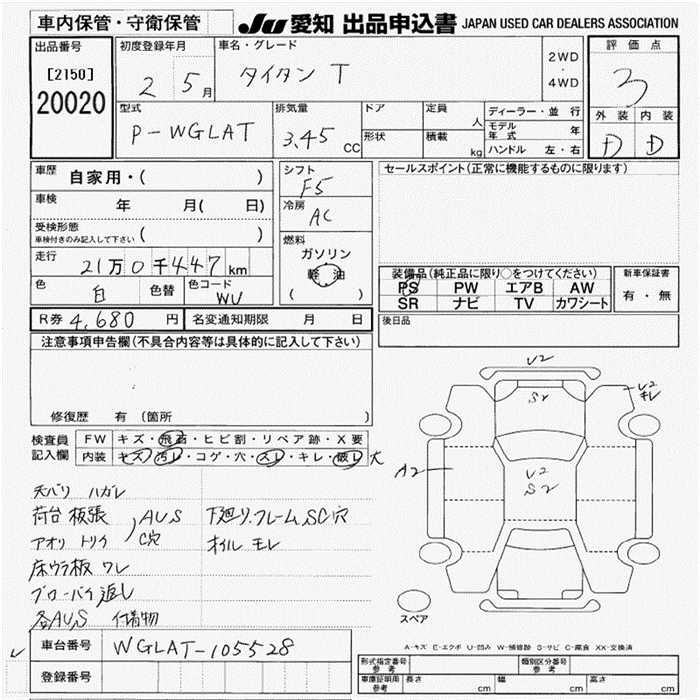 車内保管・守衛保管
JU 愛知 出品申込書 JAPAN USED CAR DEALERS ASSOCIATION
出品番号
[2150]
20020
初度登録年月
2 5月
車名・グレード
タイタン T
2WD
・
4WD
評価点
3
外装 内装
D D
型式
P-WGLAT
排気量
3.45 CC
ドア
形状
定員
人
積載
kg
ディーラー・並行
モデル年式 年
ハンドル 左・右
車歴
自家用・( )
車検
年 月( 日)
受検形態
車検付きのみ記入して下さい ( )
走行
21万0千447km
色
白
色替
色コード
WU
シフト
F5
冷房
AC
燃料
ガソリン
軽油
( )
セールスポイント(正常に機能するものに限ります)
装備品(純正品に限り○をつけてください)
PS PW エアB AW
SR ナビ TV カワシート
新車保証書
有・無
R券 4,680 円
名変通知期限 月 日
後日品
注意事項申告欄(不具合内容等は具体的に記入して下さい)
修復歴 有(箇所 )
検査員記入欄
FW キズ・飛石・ヒビ割・リペア跡・X要
内装 キズ・汚レ・コゲ・穴・スレ・キレ・破レ 大
天バリ ハガレ
荷台 板張 AUS
アオリ トリイ C穴
床ウラ板 ワレ
ブローバイ返し
各AUS 付着物
下廻り.フレームSC穴
オイル モレ
V2
S2
V2
キレ
A2
V2
S2
スペア
A-キズ E-エクボ U-凹み W-補修跡 S-サビ C-腐食 XX-交換済
車台番号 WGLAT-105528
登録番号
形式指定番号 参考
類別区分番号 参考
車庫証明用 参考
長さ cm
幅 cm
高さ cm